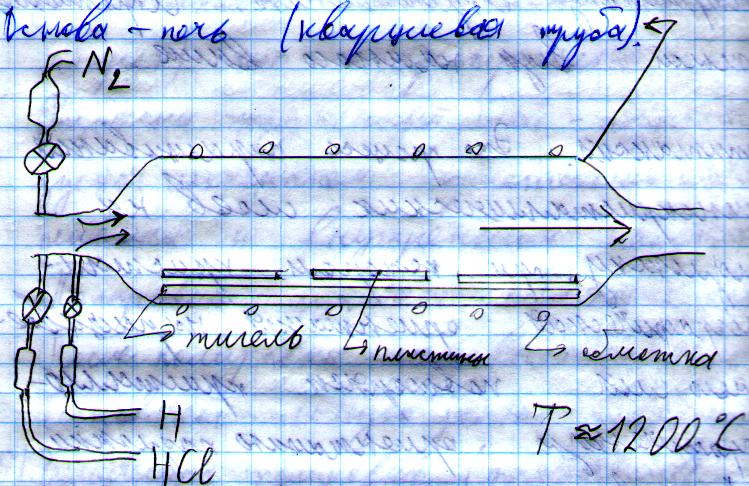 Основа – печь (кварцевая труба)
N2
тигель
пластины
обмотка
H
HCl
T ≈ 1200 °C